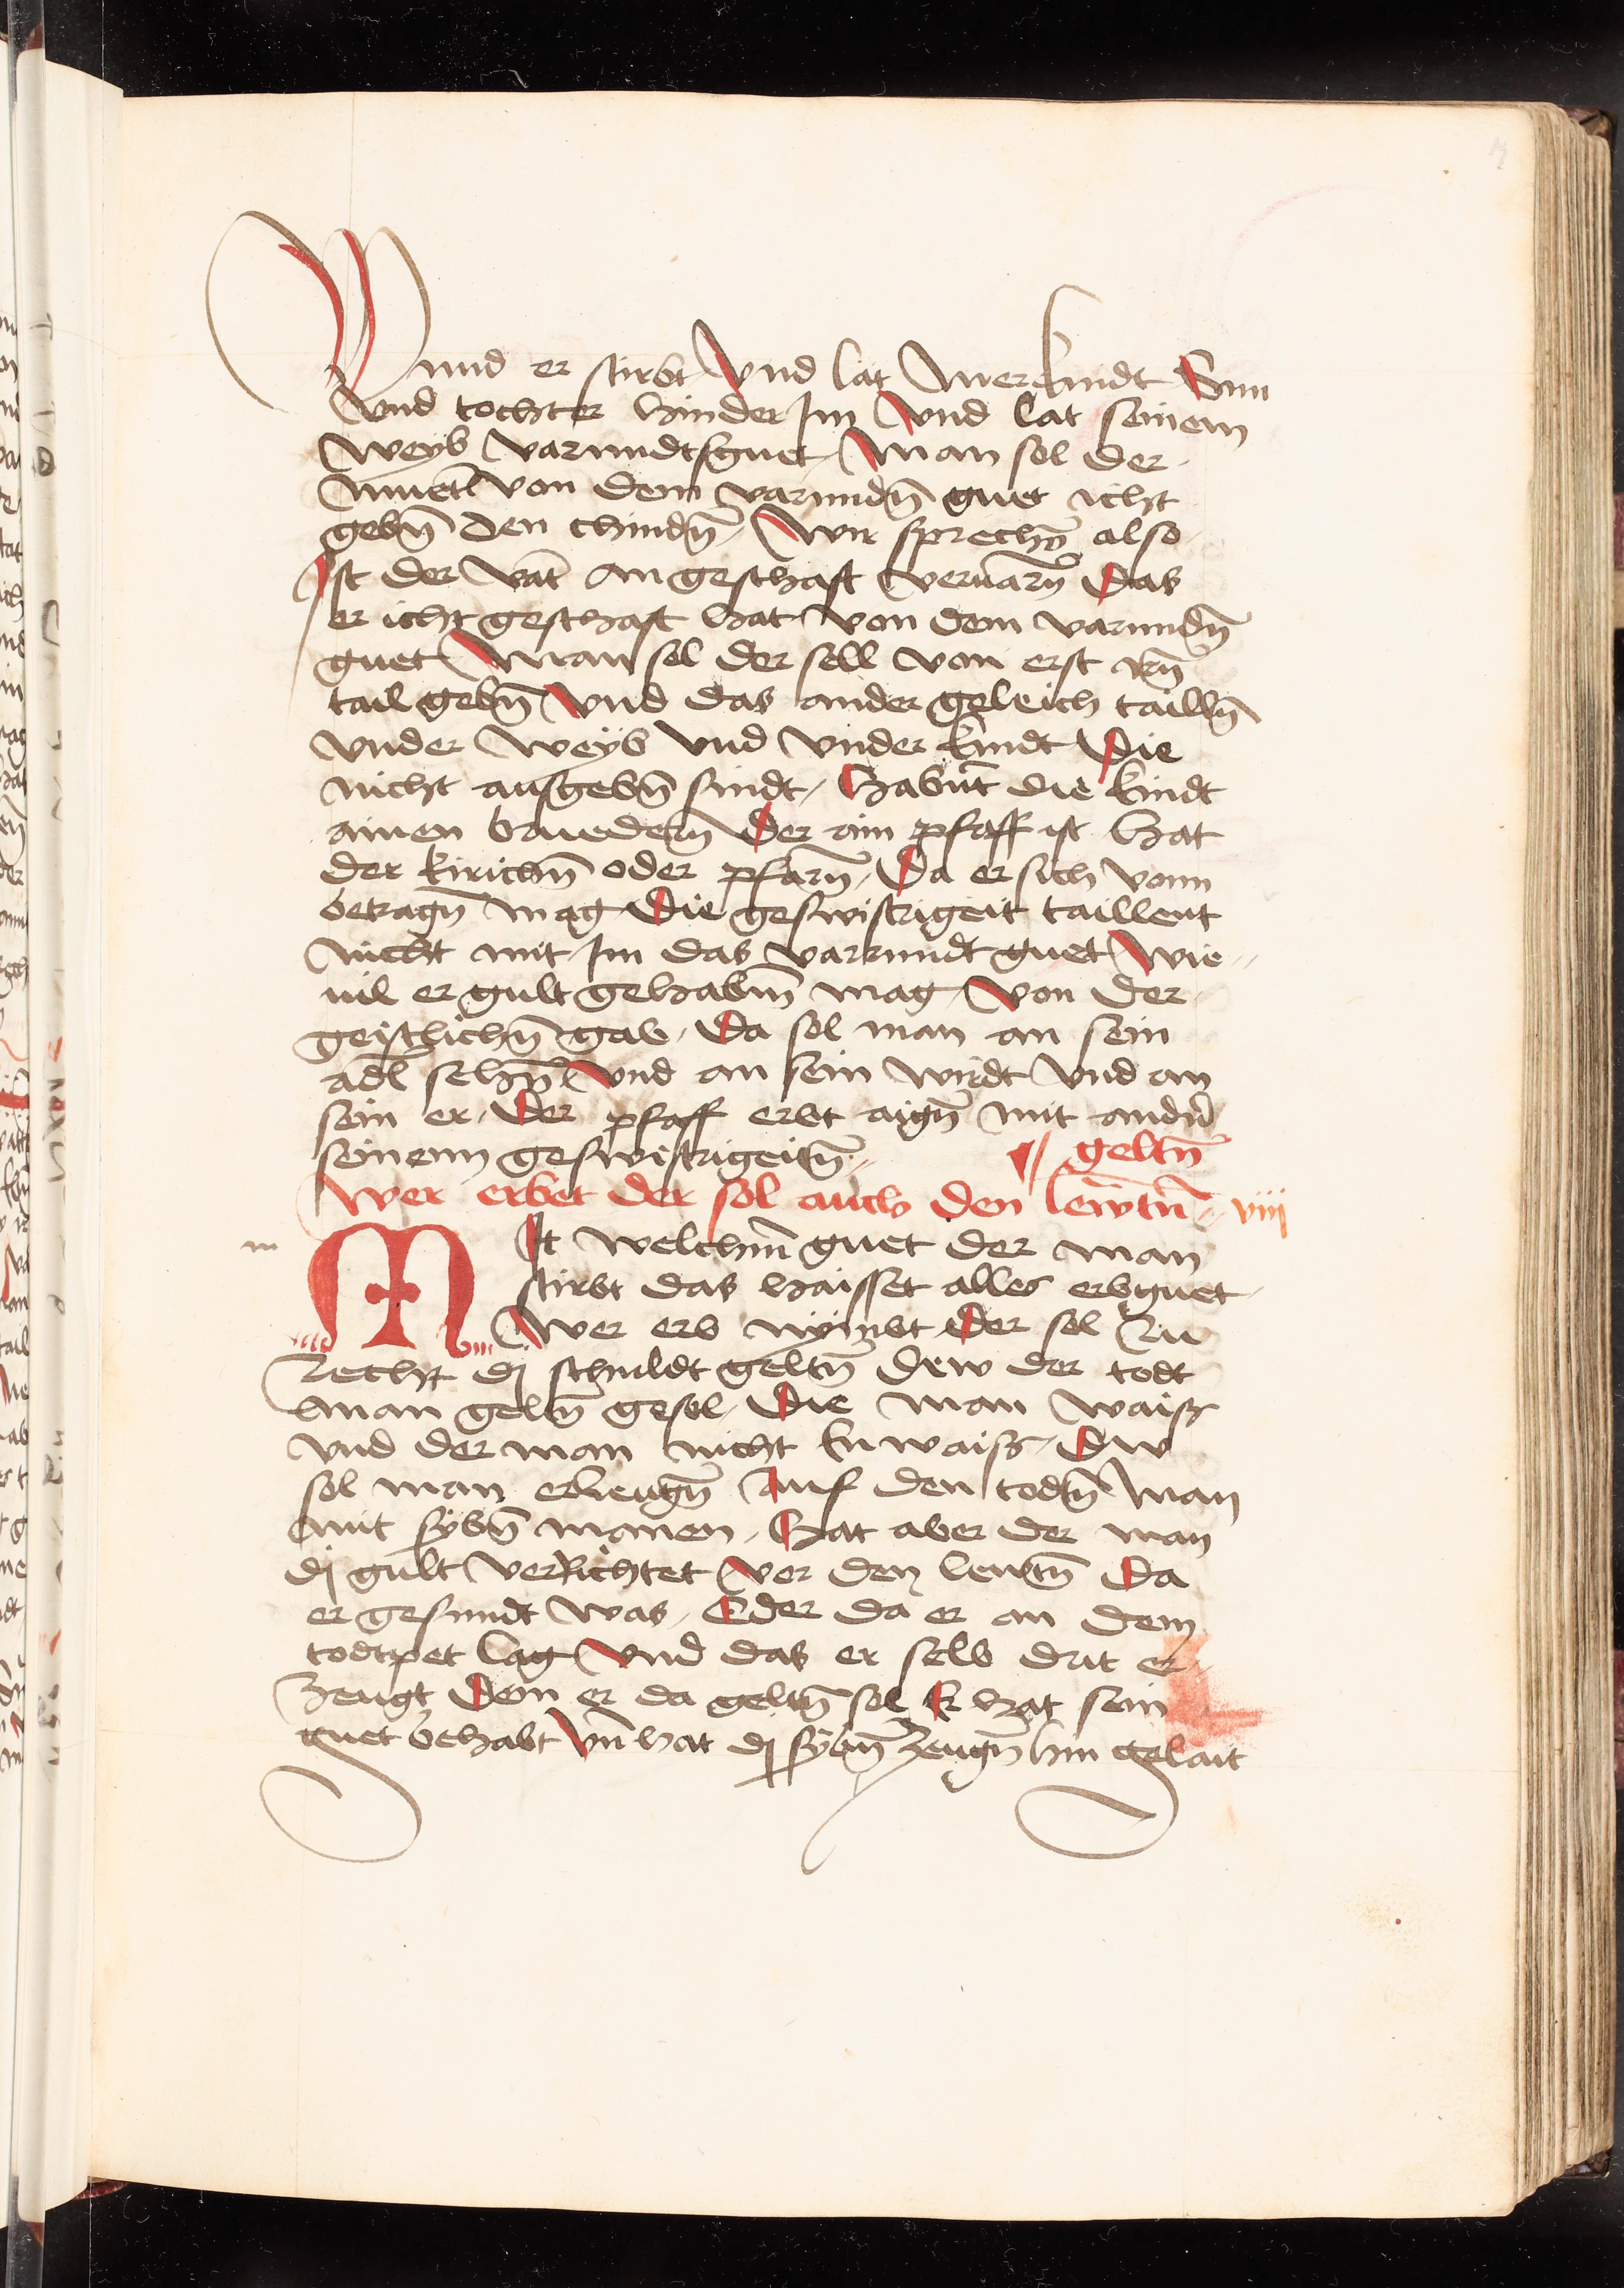 Vnnd er stirbt Vnd lat Mer kindt Sun
Vnd tochter hinder Im Vnd lat seinem
Weyb varundtsguet Man sol der
Muetˀ von dem varundn̄ guet icht
gebn̄ den chindn̄ Wir sprechn̄ also
Ist der Vatˀ An geschaft Veruarn̄ Das
er icht geschaft hat von dem varundn̄
guet Man sol der sell von erst irn̄
tail gebn̄ Vnd das ander geleich tailln̄
Vnder Weyb Vnd Vnder kindt Die
nicht ausgebn̄ sindt Habnt̄ die kindt
ainen bruedern̄ Der ain pfaff ist Hat
der kirichn̄ oder pfarn̄ Da er sich vonn
betragn̄ mag Die geswistrigeit taillent
nicht mit Im das varundt guet Wie
uil er gult gehabm̄ mag Von der
geistlichn̄ gab Da sol man an sein
adl sehn̄ Vnd an sein Wirdt Vnd an
sein er Der pfaff erbt aign̄ mit andn̄
seinenn geswistrigeitn̄
geltn̄
Wer erbet der sol auch den lewtn̄ viij
m
MIt welchm̄ guet der man
stirbt das haisset alles erbguet
Wer erb nymbt Der sol Zu
Recht dj schuldt geltn̄ dew der todt
Man geltn̄ gesol Die man waiss
Vnd der man nicht En waiss Dew
sol man erzeugn̄ Auf den todtn̄ Man
mit sybn̄ mannen Hat aber der man
dj gult Verrichtet Vor den lewtn̄ Da
er gesundt Was Oder da er an dem
todtpet lag Vnd das er selb drit er
Zeugt Dem er da geltn̄ sol Er hat sein
guet behabt Vn̄ hat dj sybn̄ Zeugn̄ hin gelait